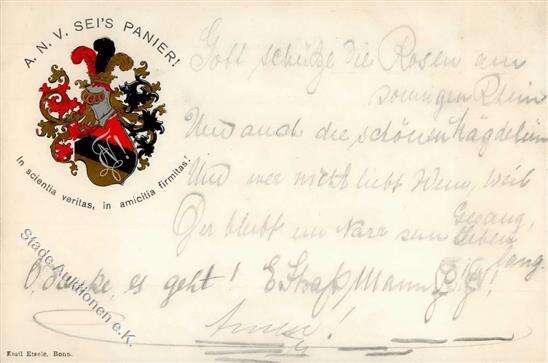 A. N. V. SEI'S PANIER!
in scientia veritas, in amicitia firmitas!
Gott schütze die Rosen am
sonnigen Rhein
Und auch die schönen Mägdelein
Und wer nicht liebt Wein, Weib
Gesang,
Der bleibt ein Narr sein Leben
lang.
O danke, es geht! E. Straßmann
Stade Auktionen e.K.
Emil Eisele, Bonn.